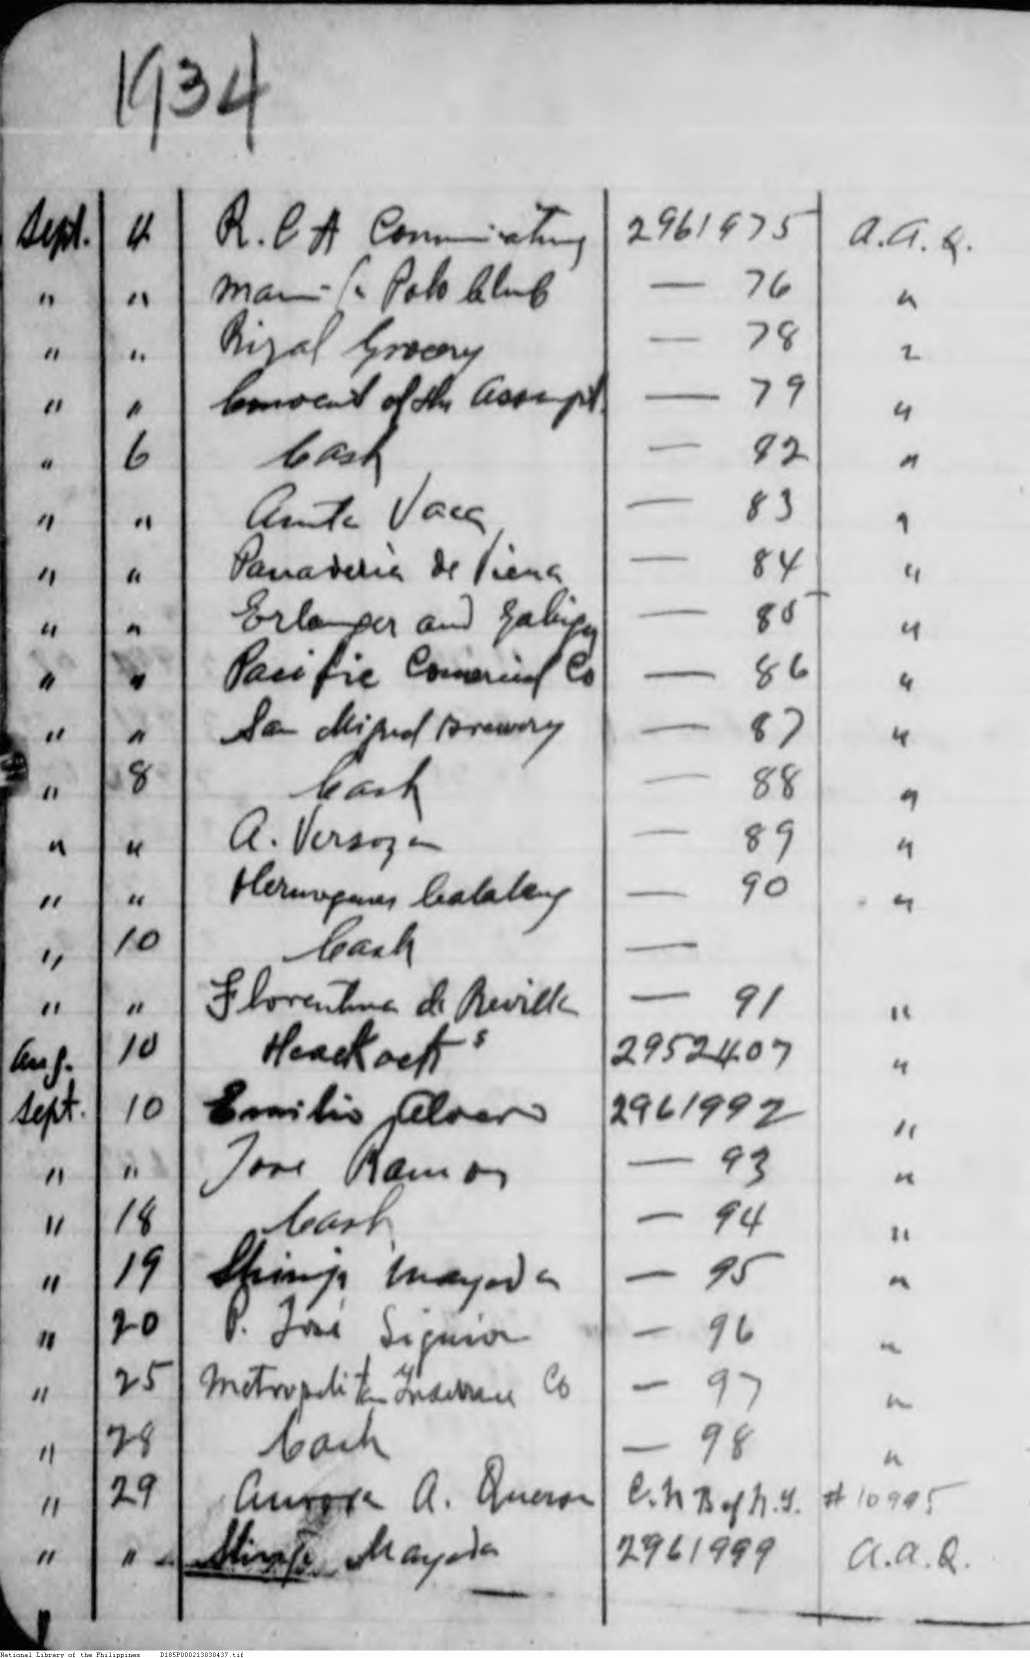 1934
Sept. 4 R.C A Communications 2961975 A.A.Q.
" " Polo Club — 76 "
" " Rizal Grocery — 78 "
" " Convent of the Assumpt. — 79 "
" 6 Cash — 82 "
" " Anita Vaca — 83 "
" " Panaderia de Viena — 84 "
" " Erlanger and Galinger — 85 "
" " Pacific Comercial Co — 86 "
" " San Miguel Brewery — 87 "
" 8 Cash — 88 "
" " A. Versoza — 89 "
" " Hermogenes — 90 "
" 10 Cash —
" " Florentina de Revilla — 91 "
Aug. 10 Heackock s 2952407 "
Sept. 10 Emilio Alvero 2961992 "
" " Jose Ramos — 93 "
" 18 Cash — 94 "
" 19 Shinji Mayeda — 95 "
" 20 P. José Siguion — 96 "
" 25 Metropolitan Insurance Co — 97 "
" 28 Cash — 98 "
" 29 Aurora A. Quezon C.N B of N.Y. # 10995
" " Shinji Mayeda 2961999 A.A.Q.
National Library of the Philippines D185P000213838437.tif